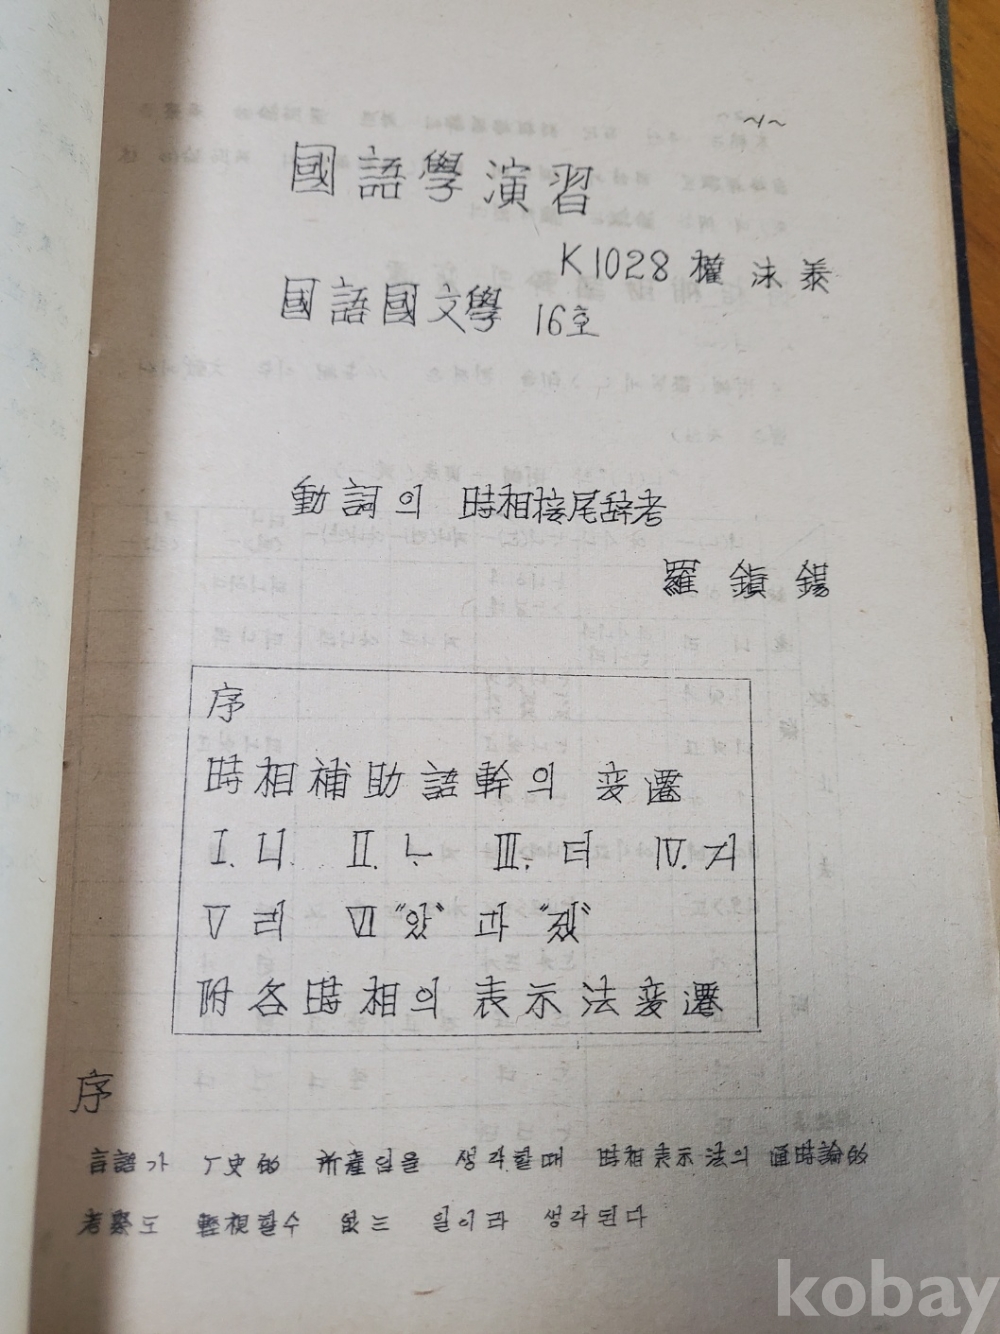 ~1~
國語學演習
K1028 權 沫 泰
國語國文學 16호
動詞의 時相接尾辞考
羅 鎭 錫
序
時相補助語幹의 変遷
I. 니 II. ᄂ III. 더 IV. 거
V 리 VI "았" 과 "겠"
附 各時相의 表示法変遷
序
言語가 歷史的 所産임을 생각할때 時相表示法의 通時論的
考察도 輕視할수 없는 일이라 생각된다
kobay